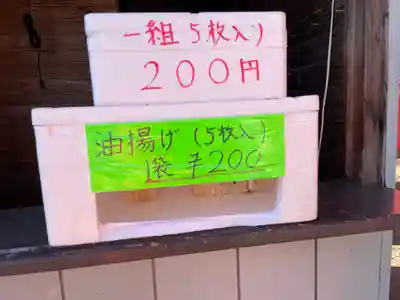 一組5枚入り
200円
油揚げ(5枚入)
1袋 ¥200